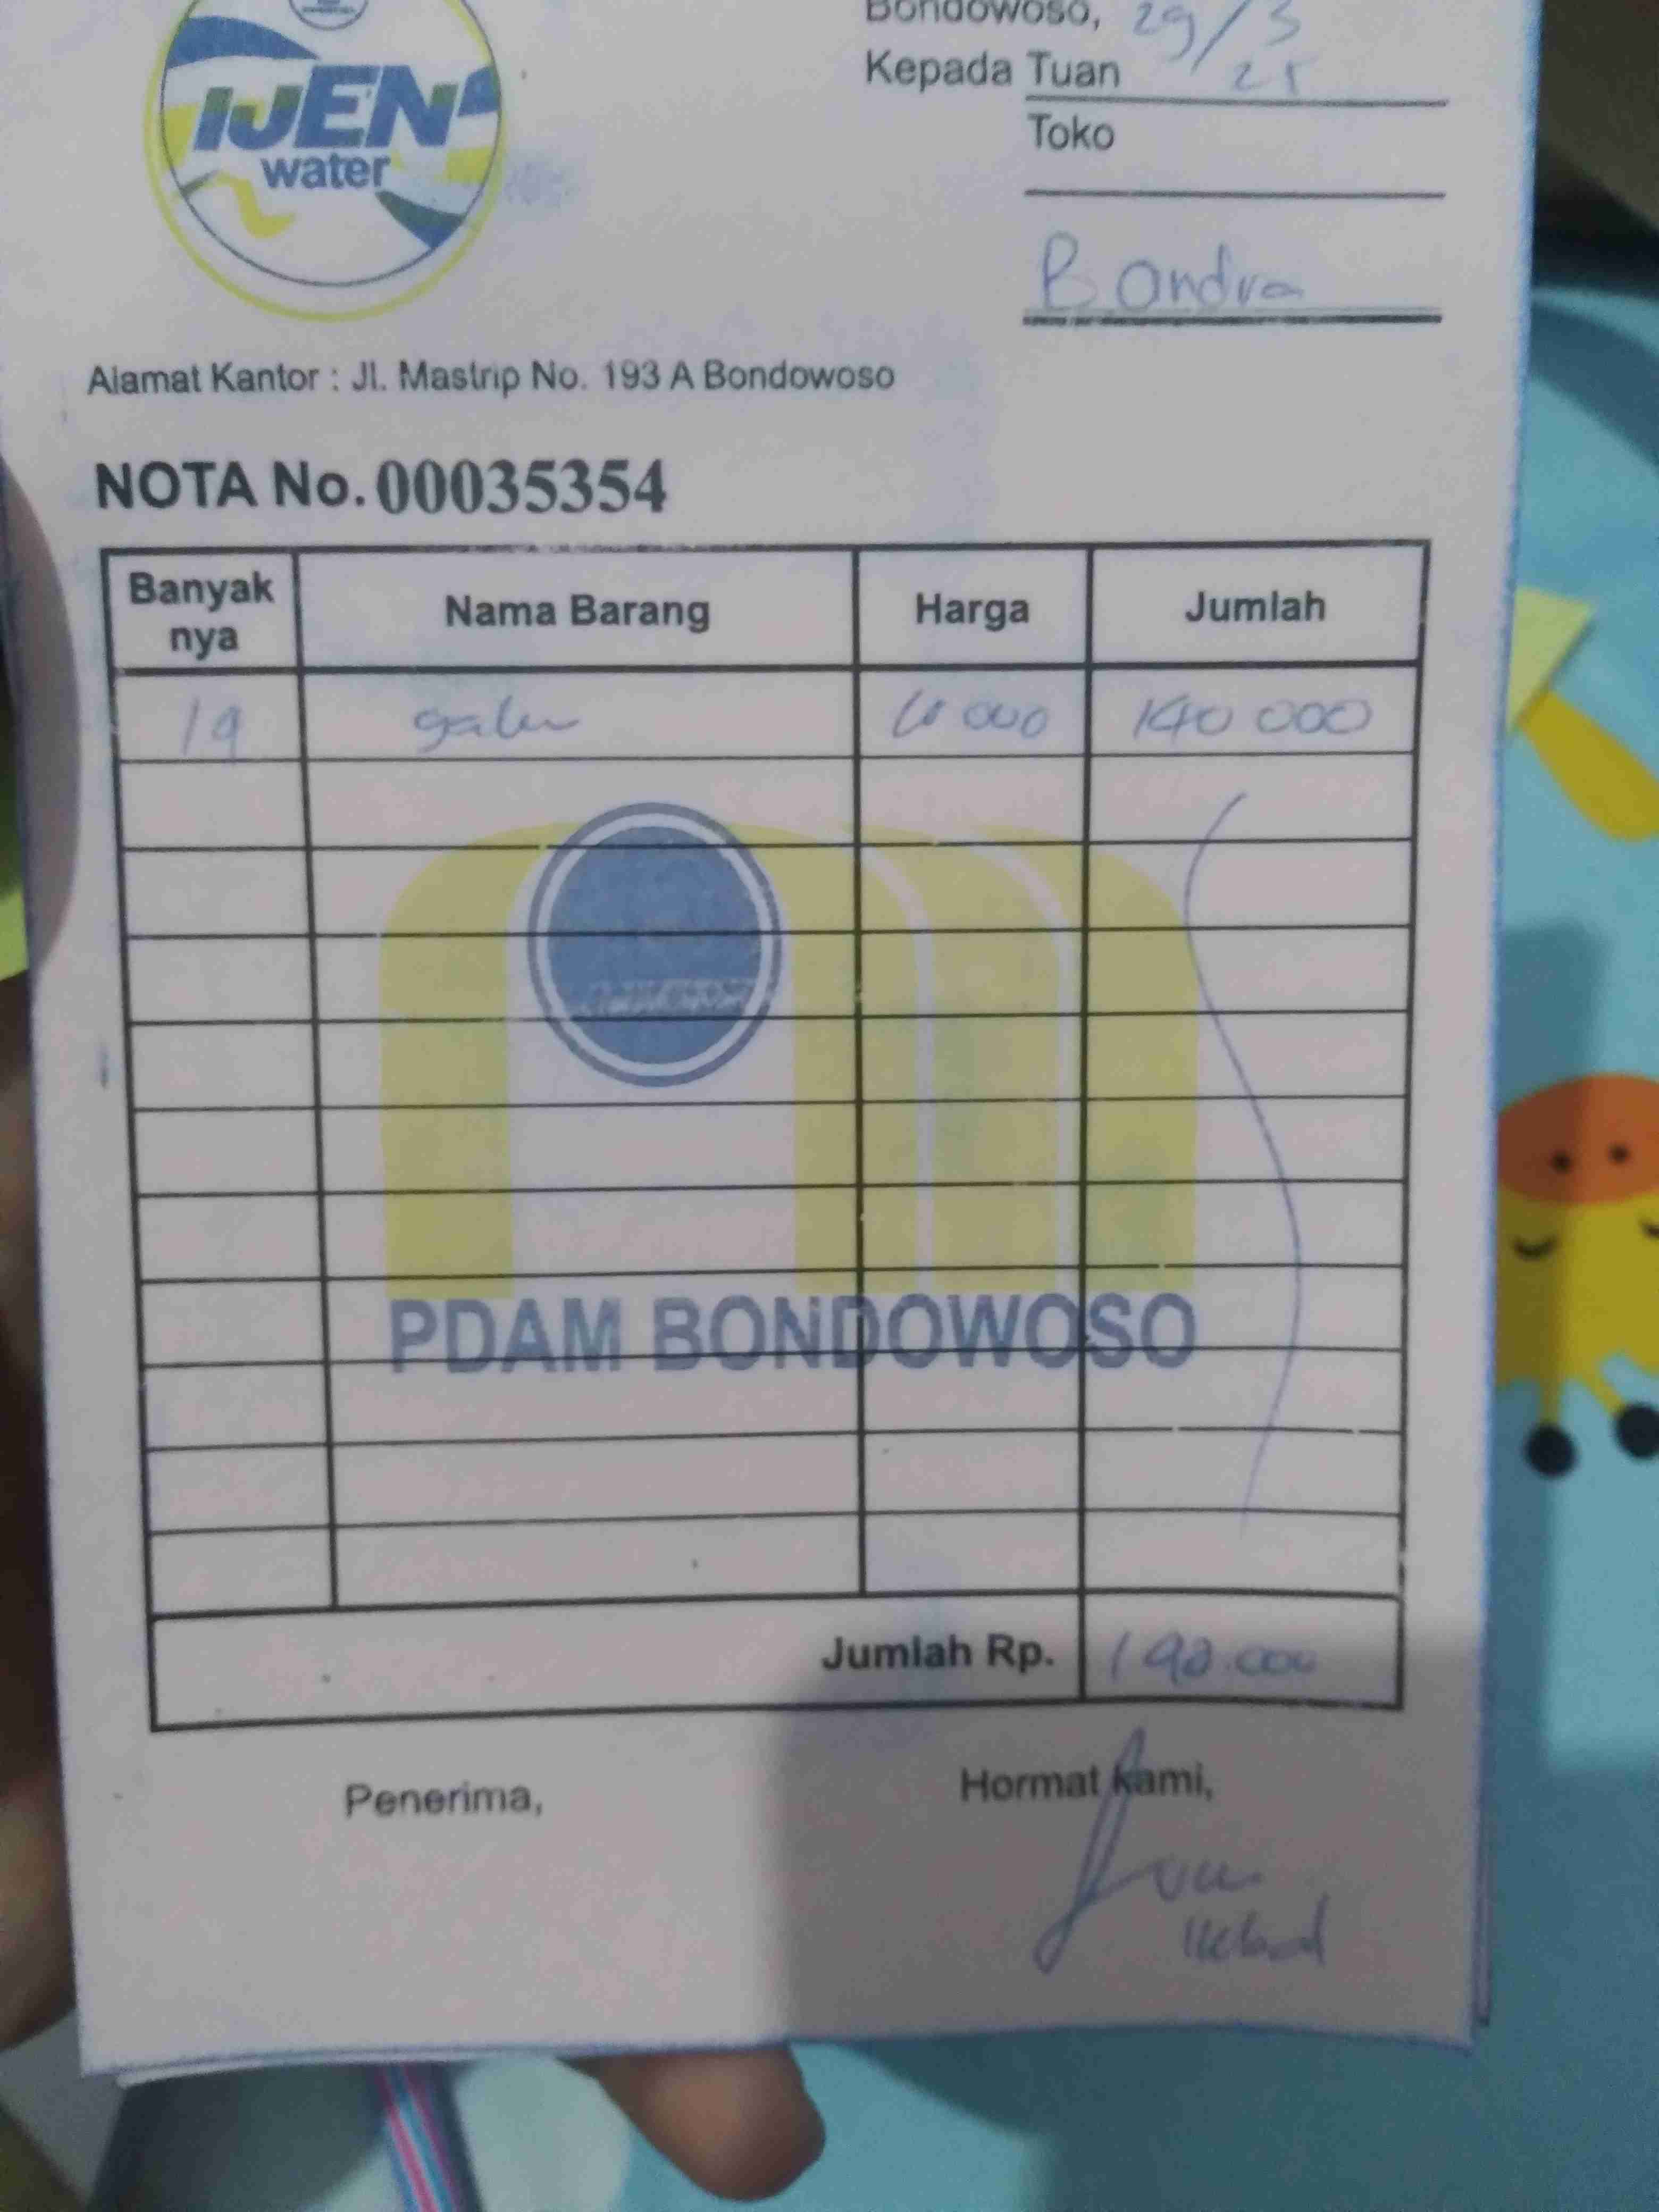 IJEN
water
Bondowoso, 29/3
Kepada Tuan 25
Toko
Alamat Kantor : Jl. Mastrip No. 193 A Bondowoso
NOTA No. 00035354
Banyak nya Nama Barang Harga Jumlah
galon 000 140 000
PDAM BONDOWOSO
Jumlah Rp.
Penerima, Hormat kami,